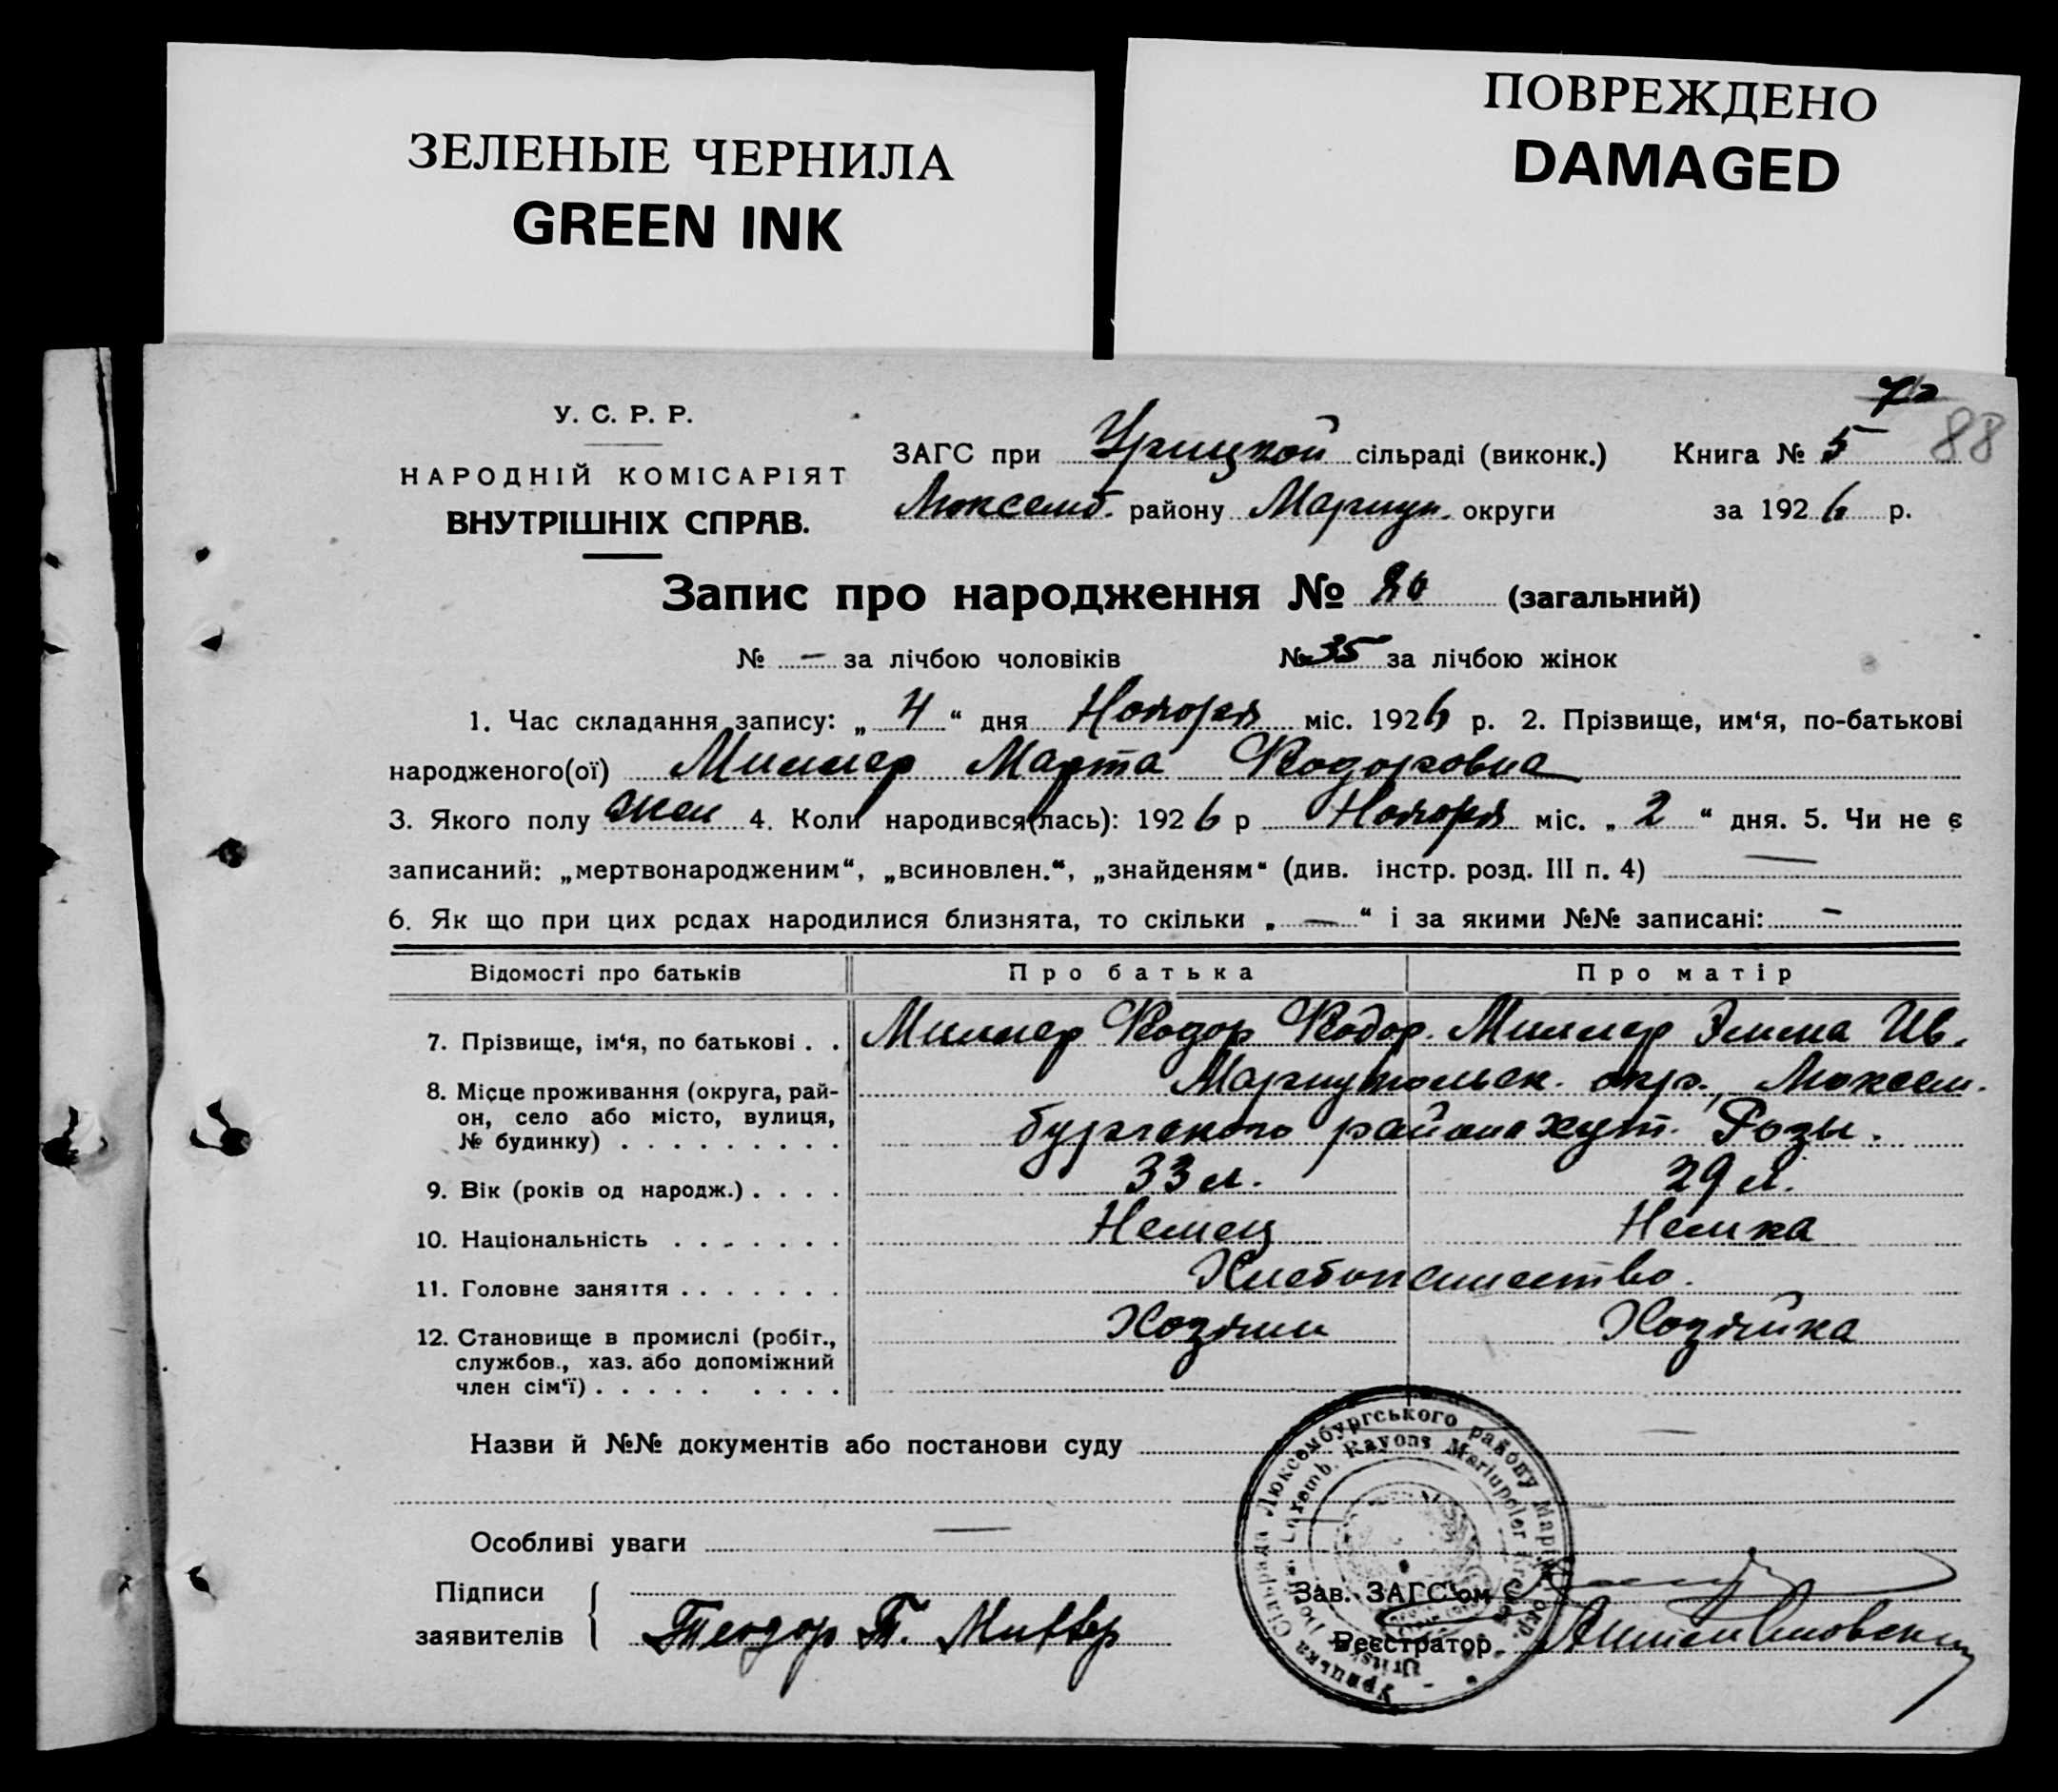 ЗЕЛЕНЫЕ ЧЕРНИЛА
GREEN INK
ПОВРЕЖДЕНО
DAMAGED
88
У. С. Р. Р.
НАРОДНІЙ КОМІСАРІЯТ
ВНУТРІШНІХ СПРАВ.
ЗАГС при Урицкой сільраді (виконк.) Книга № 5
Люксемб. району Мариуп. округи за 1926 р.
Запис про народження № 80 (загальний)
№ — за лічбою чоловіків № 35 за лічбою жінок
1. Час складання запису: „ 4 “ дня Ноября міс. 1926 р. 2. Прізвище, им‘я, по-батькові
народженого(ої) Миллер Марта Федоровна
3. Якого полу жен 4. Коли народився(лась): 1926 р Ноября міс. „ 2 “ дня. 5. Чи не є
записаний: „мертвонародженим“, „всиновлен.“, „знайденям“ (див. інстр. розд. III п. 4) —
6. Як що при цих родах народилися близнята, то скільки „ — “ і за якими №№ записані: —
Відомості про батьків Про батька Про матір
7. Прізвище, ім‘я, по батькові . . Миллер Федор Федор. Миллер Эмма Ив.
8. Місце проживання (округа, рай- Мариупольск. окр., Люксем-
он, село або місто, вулиця, бургского района хут. Розы.
№ будинку) . . . . . . . . .
9. Вік (років од народж.) . . . . 33 л. 29 л.
10. Національність . . . . . . . Немец Немка
11. Головне заняття . . . . . . . Хлебопашество.
12. Становище в промислі (робіт., Хозяин Хозяйка
службов., хаз. або допоміжний
член сім‘ї) . . . . . . . . .
Назви й №№ документів або постанови суду —
Особливі уваги —
Підписи
заявителів Теодор Т. Миллер
Зав. ЗАГС'ом
Реєстратор
Урицька Сільрада Люксембургського району Маріюп. окр.
Luxemb. Rayons Mariupoler